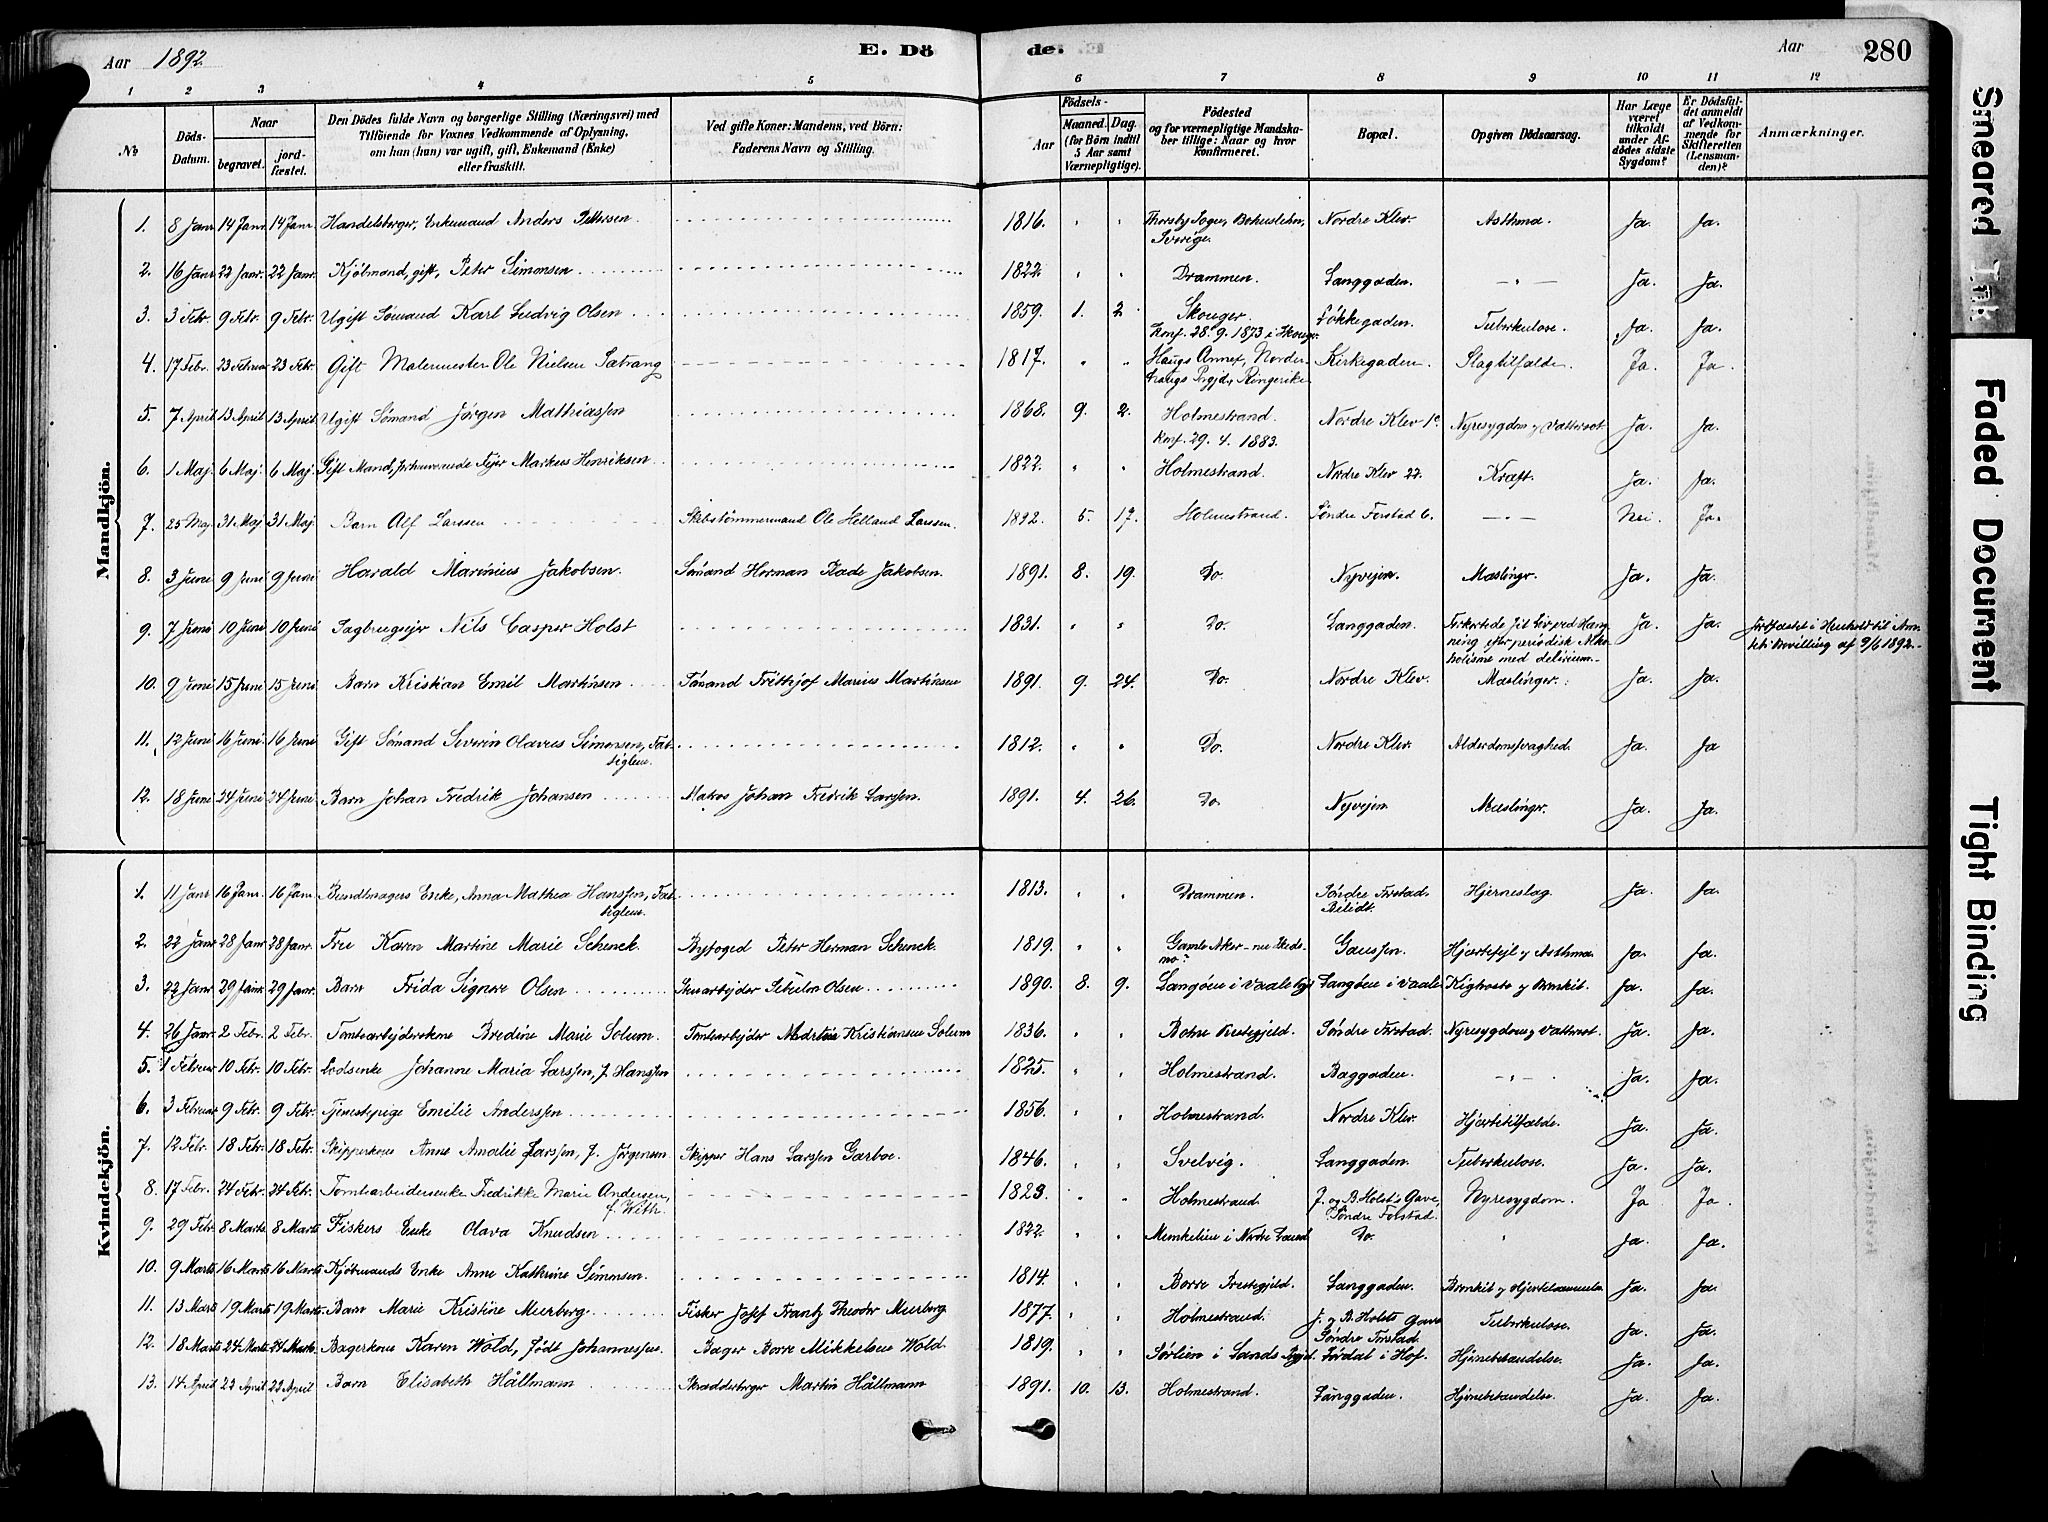 Aar 1892.
E. Döde.
Aar
280
1 2 3 4 5 6 7 8 9 10 11 12
No
Döds-Datum.
Naar
begravet.
jordfæstet.
Den Dödes fulde Navn og borgerlige Stilling (Næringsvei) med
Tilföiende for Voxnes Vedkommende af Oplysning,
om han (hun) var ugift, gift, Enkemand (Enke)
eller fraskilt.
Ved gifte Koner: Mandens, ved Börn:
Faderens Navn og Stilling.
Födsels-
Aar
Maaned. Dag.
(for Börn indtil
5 Aar samt
Værnepligtige).
Födested
og for værnepligtige Mandskaber tillige: Naar og hvor
Konfirmeret.
Bopæl.
Opgiven Dödsaarsag.
Har Læge
været
tilkaldt
under Afdödes sidste
Sygdom?
Er Dödsfaldet anmeldt
af Vedkommende for
Skifteretten
(Lensmanden)?
Anmærkninger.
Mandkjön.
1. 8 Janr 14 Janr 14 Janr Handelsborger, Enkemand Anders Pettersen 1816. Thorsby Sogn, Bohuslehn, Sverige. Nordre Klev. Asthma. Ja. Ja.
2. 16 Janr 22 Janr. 22 Janr. Kjöbmand, gift, Peter Simonsen 1822. Drammen. Langgaden. — " — Ja. Ja.
3. 3 Febr. 9 Febr. 9 Febr. Ugift Sömand Karl Ludvig Olsen 1859. 1. 2 Skouger. Konf. 28.9.1873 i Skouger Lökkegaden. Tuberkulose. Ja. Ja.
4. 17 Febr. 23 Februar 23 Febr Gift Malermester Ole Nielsen Satrang 1817. Haugs Annex, Norderhaugs Prgjd., Ringerike Kirkegaden. Slagtilfælde. Ja. Ja.
5. 7 April 13 April 13 April Ugift Sömand Jörgen Mathiassen 1868. 9. 2. Holmestrand. Konf. 29. 4. 1883. Nordre Klev Nyresygdom og Vattersot Ja. Ja.
6. 1 Maj. 6 Maj. 6 Maj. Gift Mand, forhenværende Fejer Markus Henriksen 1822. Holmestrand. Nordre Klev 22. Kræft. Ja. Ja.
7. 25 Maj 31 Maj 31 Maj. Barn Alf Larssen Skibstömmermand Ole Helland Larssen. 1892. 5. 17. Holmestrand. Söndre Forstad 6. — " — Nei. Ja.
8. 3 Juni 9 Juni 9 Juni Harald Marinius Jakobsen. Sömand Herman Rade Jakobsen. 1891. 8. 19. Do. Nyvejen. Mæslinger. Ja. Ja.
9. 7 Juni 10 Juni 10 Juni Sagbrugsejer Nils Casper Holst 1831. Do. Langgaden. Forkortede sit Liv ved Hængning efter periodisk Alkoholisme med delirium. Ja. Ja. Jordfæstet i Henhold til Amtets Bevilling af 9/6 1892.
10. 9 Juni 15 Juni 15 Juni Barn Kristian Emil Martinsen Sömand Frithjof Marius Martinsen 1891. 9. 24. Do. Nordre Klev. Mæslinger. Ja. Ja.
11. 12 Juni 16 Juni. 16 Juni Gift Sömand Severin Olavus Simonsen, Fattiglem. 1812. Do. Nordre Klev. Alderdomssvaghed. Ja. Ja
12. 18 Juni 24 Juni 24 Juni Barn Johan Fredrik Johansen Matros Johan Fredrik Larssen. 1891. 4. 26. Do. Nyvejen. Mæslinger. Ja. Ja.
Kvindekjön.
1. 11 Janr 16 Janr. 16 Janr Bundtmagers Enke, Anna Mathea Hanssen, Fattiglem. 1813. Drammen. Söndre Forstad. Hjerneslag. Ja. Ja.
2. 22 Janr 28 Janr 28 Janr. Fru Karen Martine Marie Schenck Byfoged Peter Herman Schenck. 1819. Gaussen. Hjertefejl og Asthma Ja. Ja.
3. 22 Janr 29 Janr 29 Janr. Barn Frida Signore Olsen Stenarbejder Olsen 1890. 8. 9. Langöen i Vaale Langöen i Vaale Kighoste og Bronkit. Ja. Ja.
4. 26 Janr 2 Febr. 2 Febr. Tomtearbejderskone Bredine Marie Solum. Tomtearbejder Kristiansen Solum 1836. Præstegjeld. Söndre Forstad. Nyresygdom og Vattersot. Ja. Ja.
5. 1 Februar 10 Febr. 10 Febr. Lodsenke Johanne Maria Larssen, f. Hanssen 1825. Holmestrand. Baggaden. — " — Ja. Ja.
6. 3 Februar 9 Febr. 9 Febr. Tjenestepige Emilie Anderssen 1856. Holmestrand. Nordre Klev. Hjertetilfælde. Ja. Ja.
7. 12 Febr. 18 Febr. 18 Febr. Skipperkone Anne Amalie Larssen, f. Jörgensen Skipper Hans Larssen Garboe. 1846. Svelvig. Langgaden. Tuberkulose. Ja. Ja.
8. 17 Febr. 24 Febr. 24 Febr. Tomtearbeidersenke Fredrikke Marie Andersen, f. With. 1823. Holmestrand J. og B. Holst's Gave, Söndre Forstad. Nyresygdom. Ja Ja
9. 29 Febr 8 Marts 8 Marts Fiskers Enke Olava Knudsen 1822. i Nordre Do. " Ja. Ja.
10. 9 Marts 16 Marts 16 Marts Kjöbmands Enke Anne Kathrine Simonsen. 1814. Borre Præstegjeld. Langgaden. Bronkit og Ja. Ja.
11. 13 Marts 19 Marts 19 Marts. Barn Marie Kristine Meerberg Fisker Josef Frantz Theodor Meerberg 1877. Holmestrand. J. og B. Holsts Gave Söndre Forstad. Tuberkulose. Ja. Ja.
12. 18 Marts 24 Marts 24 Marts Bagerkone Karen Wold, född Johannessen Bager Borre Mikkelsen Wold 1819. Sörlien i Sands i Hof. Hjernebetændelse. Ja. Ja.
13. 14 April 23 April 23 April Barn Elisabeth Hållmann Skrædderborger Martin Hållmann 1891. 10. 13. Holmestrand. Langgaden. Hjernebetændelse. Ja. Ja.
Smeared Ink
Faded Document
Tight Binding